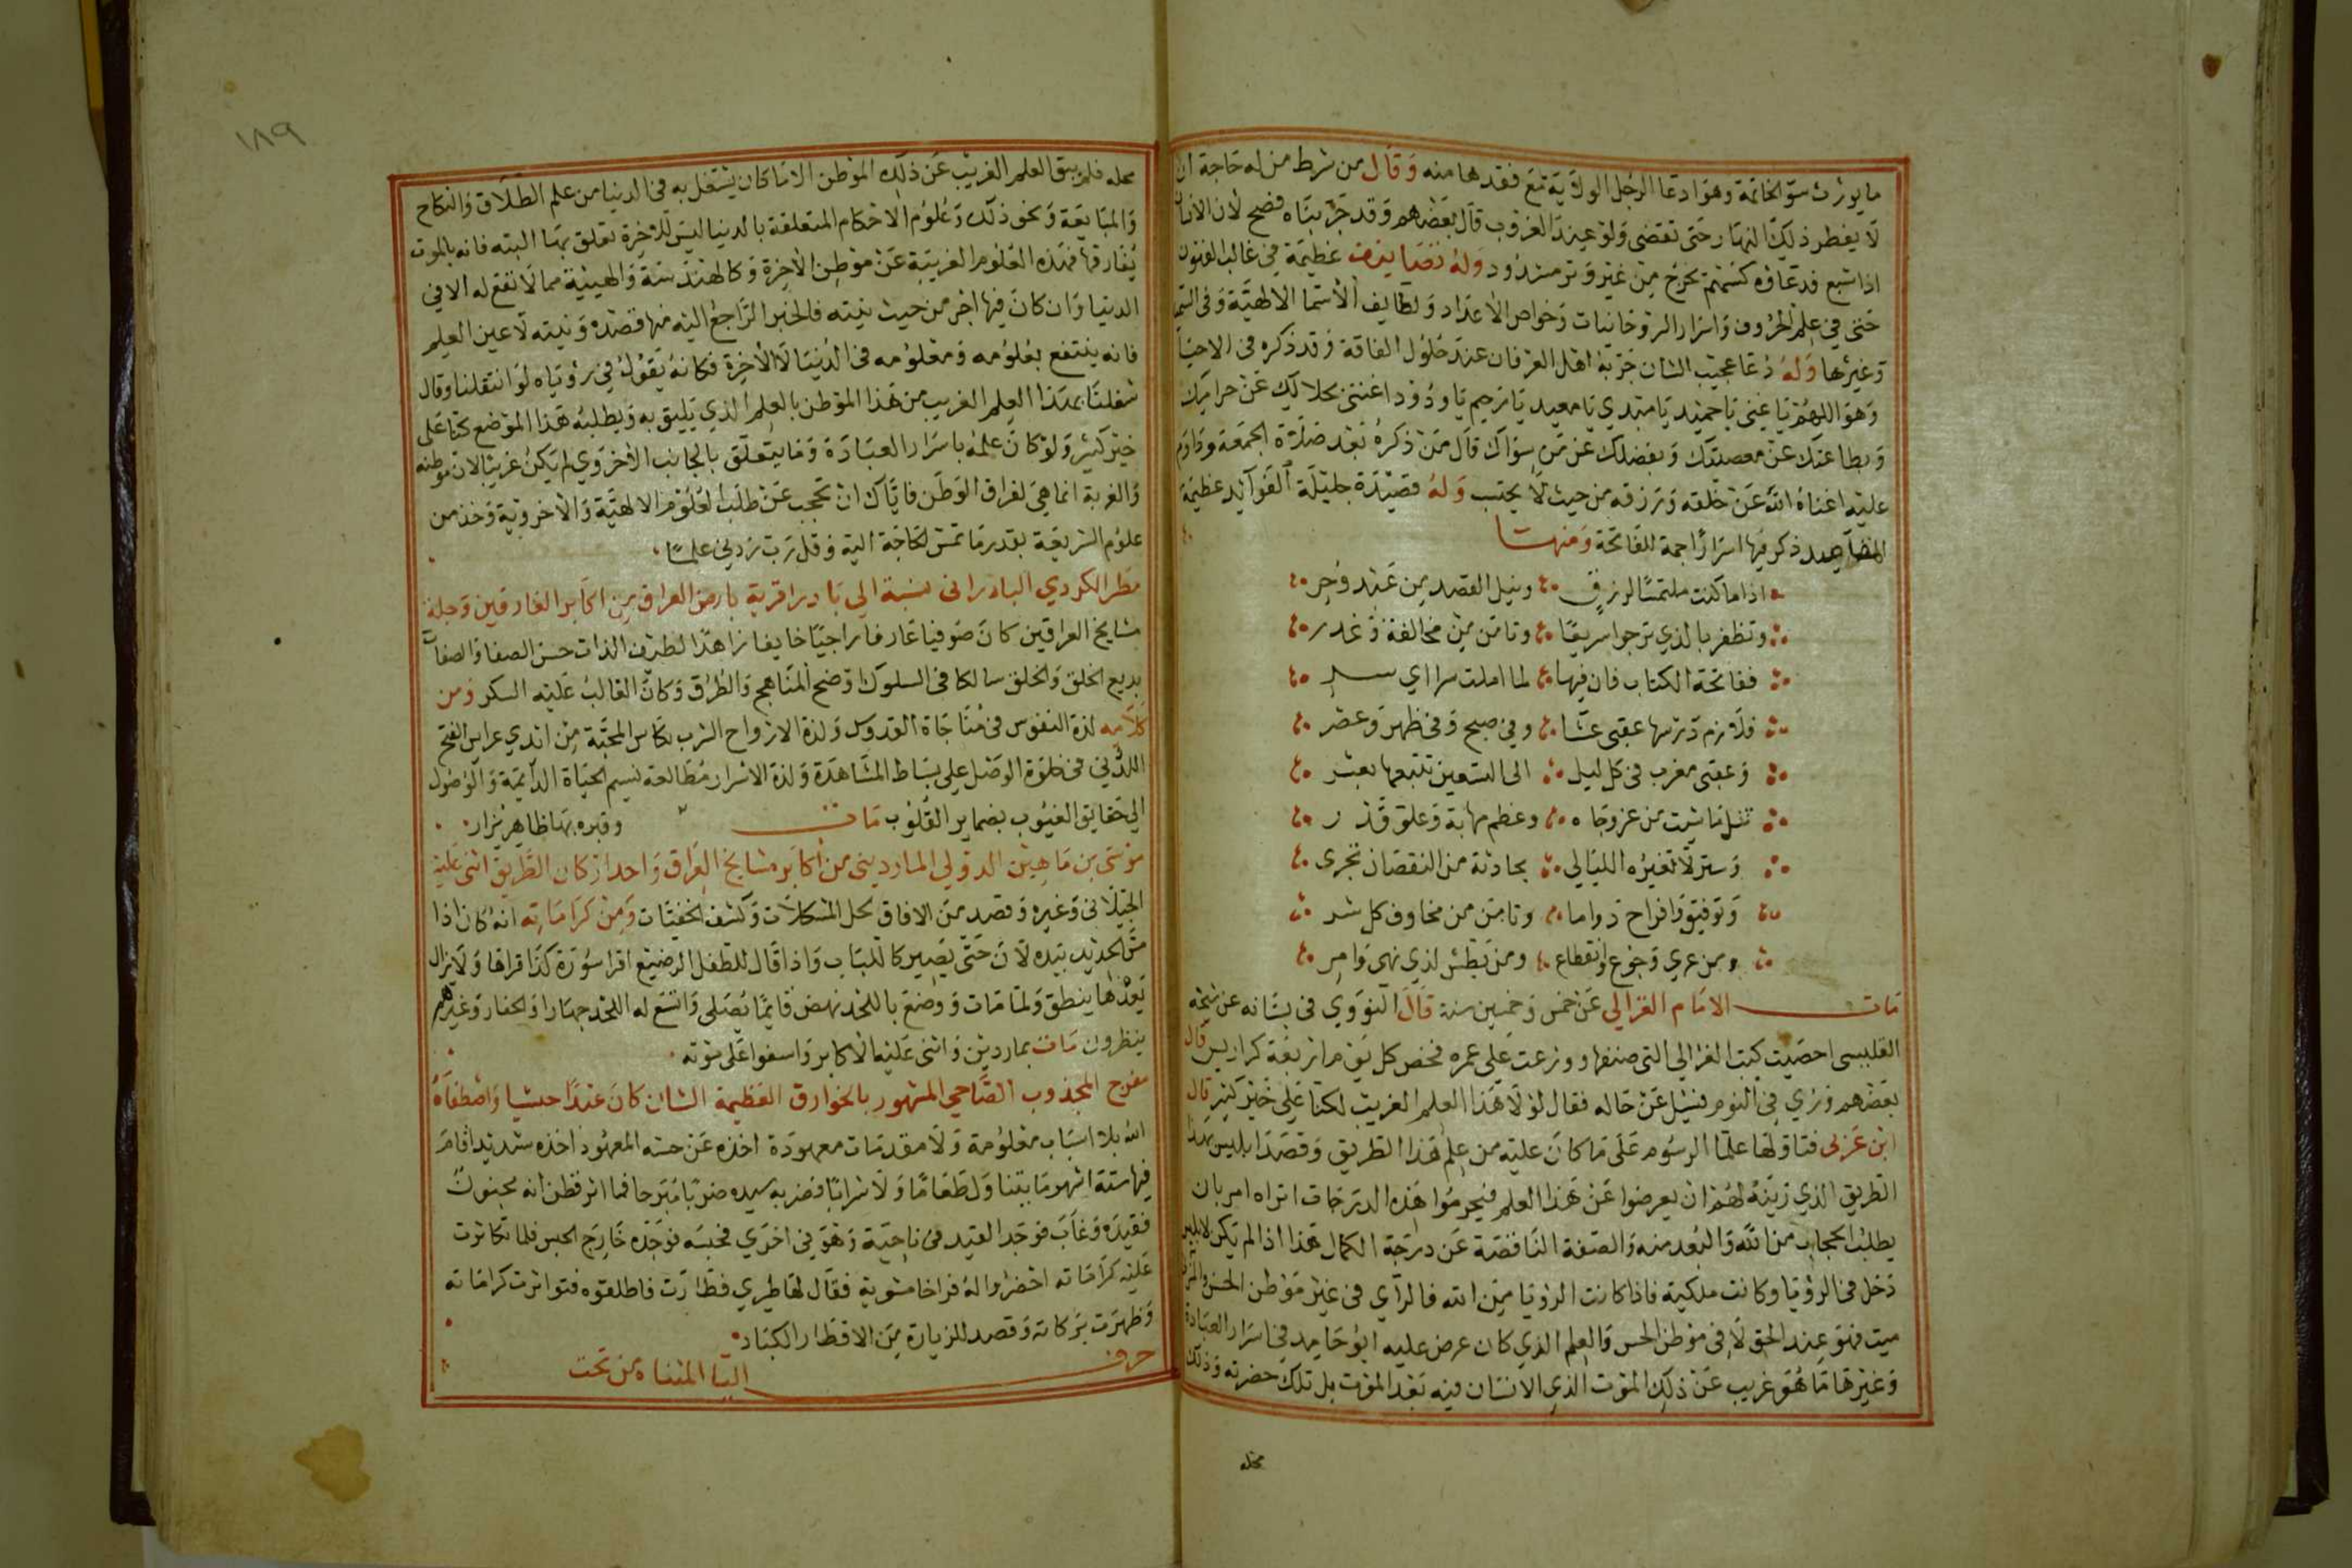 ما يورث سوّ الخاتمة وهو ادعا الرجل الولاية مع فقدها منه وقال من شرط من له حاجة ان
لا يفطر ذلك النهار حتى تقضى ولو عند الغروب قال بعضهم وقد جربناه فصح لان الانسان
اذا شبع فدعاؤه كسهم يخرج من غير وتر مشدود وله تصانيف عظيمة في غالب الفنون
حتى في علم الحروف واسرار الروحانيات وخواص الاعداد ولطايف الاسما الالهية وفي السيميا
وغيرها وله دعا عجيب الشان جربه اهل العرفان عند حلول الفاقة وقد ذكره في الاحيا
وهو اللهم يا غنى يا حميد يا مبتدي يا معيد يا رحيم يا ودود اغننى بحلالك عن حرامك
وبطاعتك عن معصيتك وبفضلك عن من سواك قال من ذكره بعد صلاة الجمعة وداوم
عليه اغناه الله عن خلقه ورزقه من حيث لا يحتسب وله قصيدة جليلة الفوآيد عظيمة
المقاصد ذكر فيها اسرارا جمة للفاتحة ومنها
اذا ما كنت ملتمسا لرزق ونيل القصد من عبد وحر
وتظفر بالذي ترجو سريعا وتامن من مخالفة وغدر
ففاتحة الكتاب فان فيها لما املت سرا اي سر
فلازم درسها عقبى عشا وفي صبح وفي ظهر وعصر
وعقبى مغرب في كل ليل الى التسعين تتبعها بعشر
تنل ما شئت من عز وجاه وعظم مهابة وعلو قدر
وستر لا تغيره الليالي بحادثة من النقصان تجرى
وتوفيق وافراح دواما وتامن من مخاوف كل شر
ومن عري وجوع وانقطاع ومن بطش لذي نهى وامر
مات الامام الغزالي عن خمس وخمسين سنة قال النووي في بستانه عن شيخه
التفليسى احصيت كتب الغزالي التى صنفها ووزعت على عمره فخص كل يوم اربعة كراريس قال
بعضهم ورؤي في النوم فسئل عن حاله فقال لولا هذا العلم الغريب لكنا على خير كثير قال
ابن عربي فتاولها علما الرسوم على ما كان عليه من علم هذا الطريق وقصد ابليس بهذا
الطريق الذي زينه لهم ان يعرضوا عن هذا العلم فيحرموا هذه الدرجات اتراه امر بان
يطلب الحجاب من الله والبعد منه والصفة الناقصة عن درجة الكمال هذا اذا لم يكن لابليس
دخل في الرؤيا وكانت ملكية فاذا كانت الرؤيا من الله فالرآي في غير موطن الحس والمرئي
ميت فهو عند الحق لا في موطن الحس والعلم الذي كان عرض عليه ابو حامد في اسرار العبادة
وغيرها ما هو غريب عن ذلك الموت الذي الانسان فيه بعد الموت بل تلك حضرته وذلك
محله
١٨٩
محله فلم يبق العلم الغريب عن ذلك الموطن الا ما كان يشتغل به في الدنيا من علم الطلاق والنكاح
والمبايعة ونحو ذلك وعلوم الاحكام المتعلقة بالدنيا ليس للاخرة تعلق بها البته فانه بالموت
يفارقها فهذه العلوم الغريبة عن موطن الاخرة وكالهندسة والهيئة مما لا نفع له الا في
الدنيا وان كان فيها اجر من حيث نيته فالخير الراجع اليه منها قصده ونيته لا عين العلم
فانه ينتفع بعلومه ومعلومه في الدنيا لا الاخرة فكانه يقول في رؤياه لو انتقلنا وقال
شغلنا بهذا العلم الغريب من هذا الموطن بالعلم الذي يليق به ويطلبه هذا الموضع كنا على
خير كثير ولو كان علمه باسرار العبادة وما يتعلق بالجانب الاخروي لم يكن غريبا لان موطنه
والغربة انما هي لفراق الوطن فاياك ان تحجب عن طلب العلوم الالهية والاخروية وخذ من
علوم الشريعة بقدر ما تمس الحاجة اليه وقل رب زدني علما
مطر الكردي البادراني نسبة الي بادرا قرية بارض العراق من اكابر العارفين وجلة
مشايخ العراقين كان صوفيا عارفا راجيا خايفا زاهدا لطيف الذات حسن الصفا والصفات
بديع الخلق والخلق سالكا في السلوك اوضح المناهج والطرق وكان الغالب عليه السكر ومن
كلامه لذة النفوس في مناجاة القدوس ولذة الارواح الشرب بكاس المحبة من ايدي عرايس الفتح
اللدني في خلوة الوصل على بساط المشاهدة ولذة الاسرار مطالعة نسيم الحياة الدايمة والوصول
الي حقايق الغيوب بضماير القلوب مات وقبره بها ظاهر يزار
موسى بن ماهين الدولي المارديني من اكابر مشايخ العراق واحد اركان الطريق اثنى عليه
الجيلاني وغيره وقصد من الافاق لحل المشكلات وكشف الخفيات ومن كراماته انه كان اذا
مس الحديد بيده لان حتى يصير كاللباب واذا قال للطفل الرضيع اقرا سورة كذا قراها ولا يزال
بعدها ينطق ولما مات ووضع باللحد نهض قايما يصلى واتسع له اللحد جهارا والحفار وغيرهم
ينظرون مات بماردين واثنى عليه الاكابر واسفوا على موته
مفرج المجذوب الصاحي المشهور بالخوارق العظيمة الشان كان عبدا حبشيا واصطفاه
الله بلا اسباب معلومة ولا مقدمات معهودة اخذه عن حسه المعهود اخذه شديد اقام
فيها ستة اشهر ما يتناول طعاما ولا شرابا فضربه سيده ضربا مبرحا فما اثر فظن انه مجنون
فقيده وغاب فوجد القيد في ناحية وهو في اخرى فحبسه فوجده خارج الحبس فلما تكاثرت
عليه كراماته احضروا له فراخا مشوية فقال لها طيري فطارت فاطلقوه فتواترت كراماته
وظهرت بركاته وقصد للزيارة من الاقطار الكبار
حرف اليا المثناة من تحت